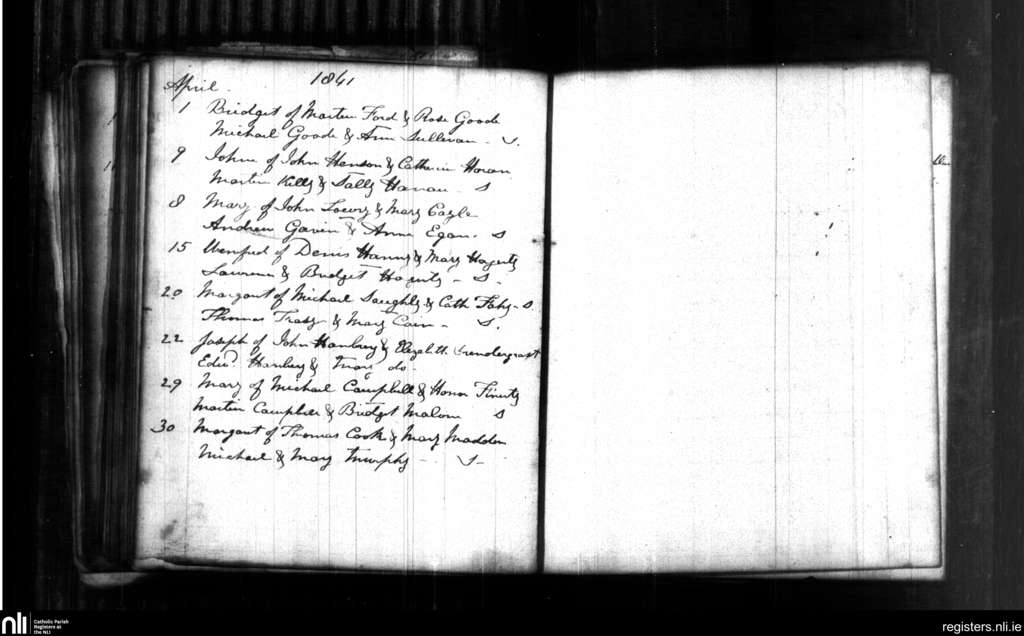 1841
April.
1 Bridget of Martin Ford & Rose Goode
Michael Goode & Ann Sullivan - S.
9 John of John Henson & Catherin Horan
Martin Kelly & Sally Hanan - S
8 Mary of John Lowry & Mary Cagle
Andrew Gavin & Anne Egan - S
15 of Denis Hanny & Mary Hagerty
Laurence & Bridget Hagerty - S -
20 Margaret of Michael & Cath Fahy - S.
Thomas Tracy & Mary - S.
22 Joseph of John Hanbery & Elizabeth Prendergrast
Edwd. Hanbery & Mary do -
29 Mary of Michael Campbell & Honor Finerty
Martin Campbell & Bridget Malone S
30 Margaret of Thomas Cook & Mary Madden
Michael & Mary Murphy - - S -
nli
Catholic Parish
Registers at
the NLI
registers.nli.ie